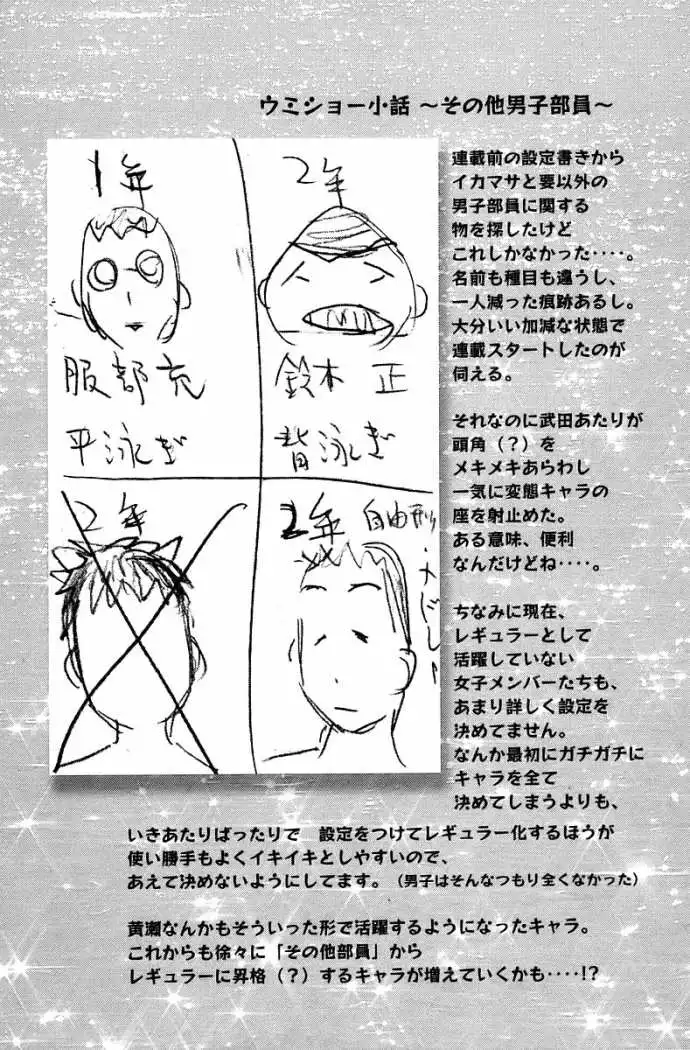 ウミショー小話 ～その他男子部員～
1年
服部 充
平泳ぎ
2年
鈴木 正
背泳ぎ
2年
2年 自由形
連載前の設定書きから
イカマサと要以外の
男子部員に関する
物を探したけど
これしかなかった‥‥。
名前も種目も違うし、
一人減った痕跡あるし。
大分いい加減な状態で
連載スタートしたのが
伺える。
それなのに武田あたりが
頭角（？）を
メキメキあらわし
一気に変態キャラの
座を射止めた。
ある意味、便利
なんだけどね‥‥。
ちなみに現在、
レギュラーとして
活躍していない
女子メンバーたちも、
あまり詳しく設定を
決めてません。
なんか最初にガチガチに
キャラを全て
決めてしまうよりも、
いきあたりばったりで　設定をつけてレギュラー化するほうが
使い勝手もよくイキイキとしやすいので、
あえて決めないようにしてます。（男子はそんなつもり全くなかった）
黄瀬なんかもそういった形で活躍するようになったキャラ。
これからも徐々に「その他部員」から
レギュラーに昇格（？）するキャラが増えていくかも‥‥!?